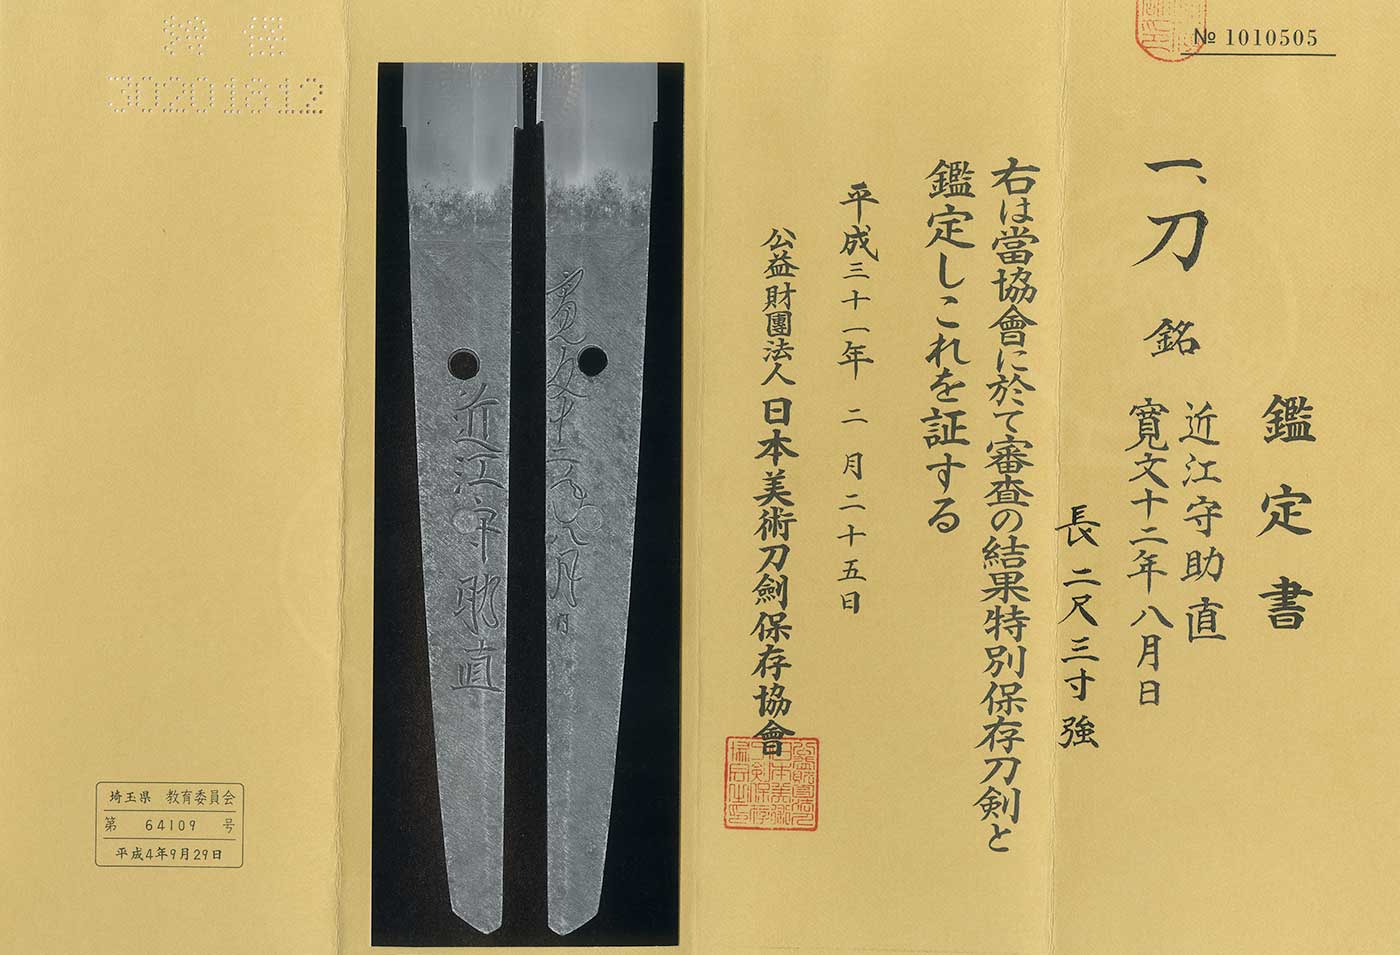 № 1010505
鑑定書
一、刀 銘 近江守助直
寛文十二年八月日
長二尺三寸強
右は當協會に於て審査の結果特別保存刀剣と
鑑定しこれを証する
平成三十一年二月二十五日
公益財團法人日本美術刀劍保存協會
寛文十二年八月日
近江守助直
特保
30201812
埼玉県 教育委員会
第 64109 号
平成4年9月29日